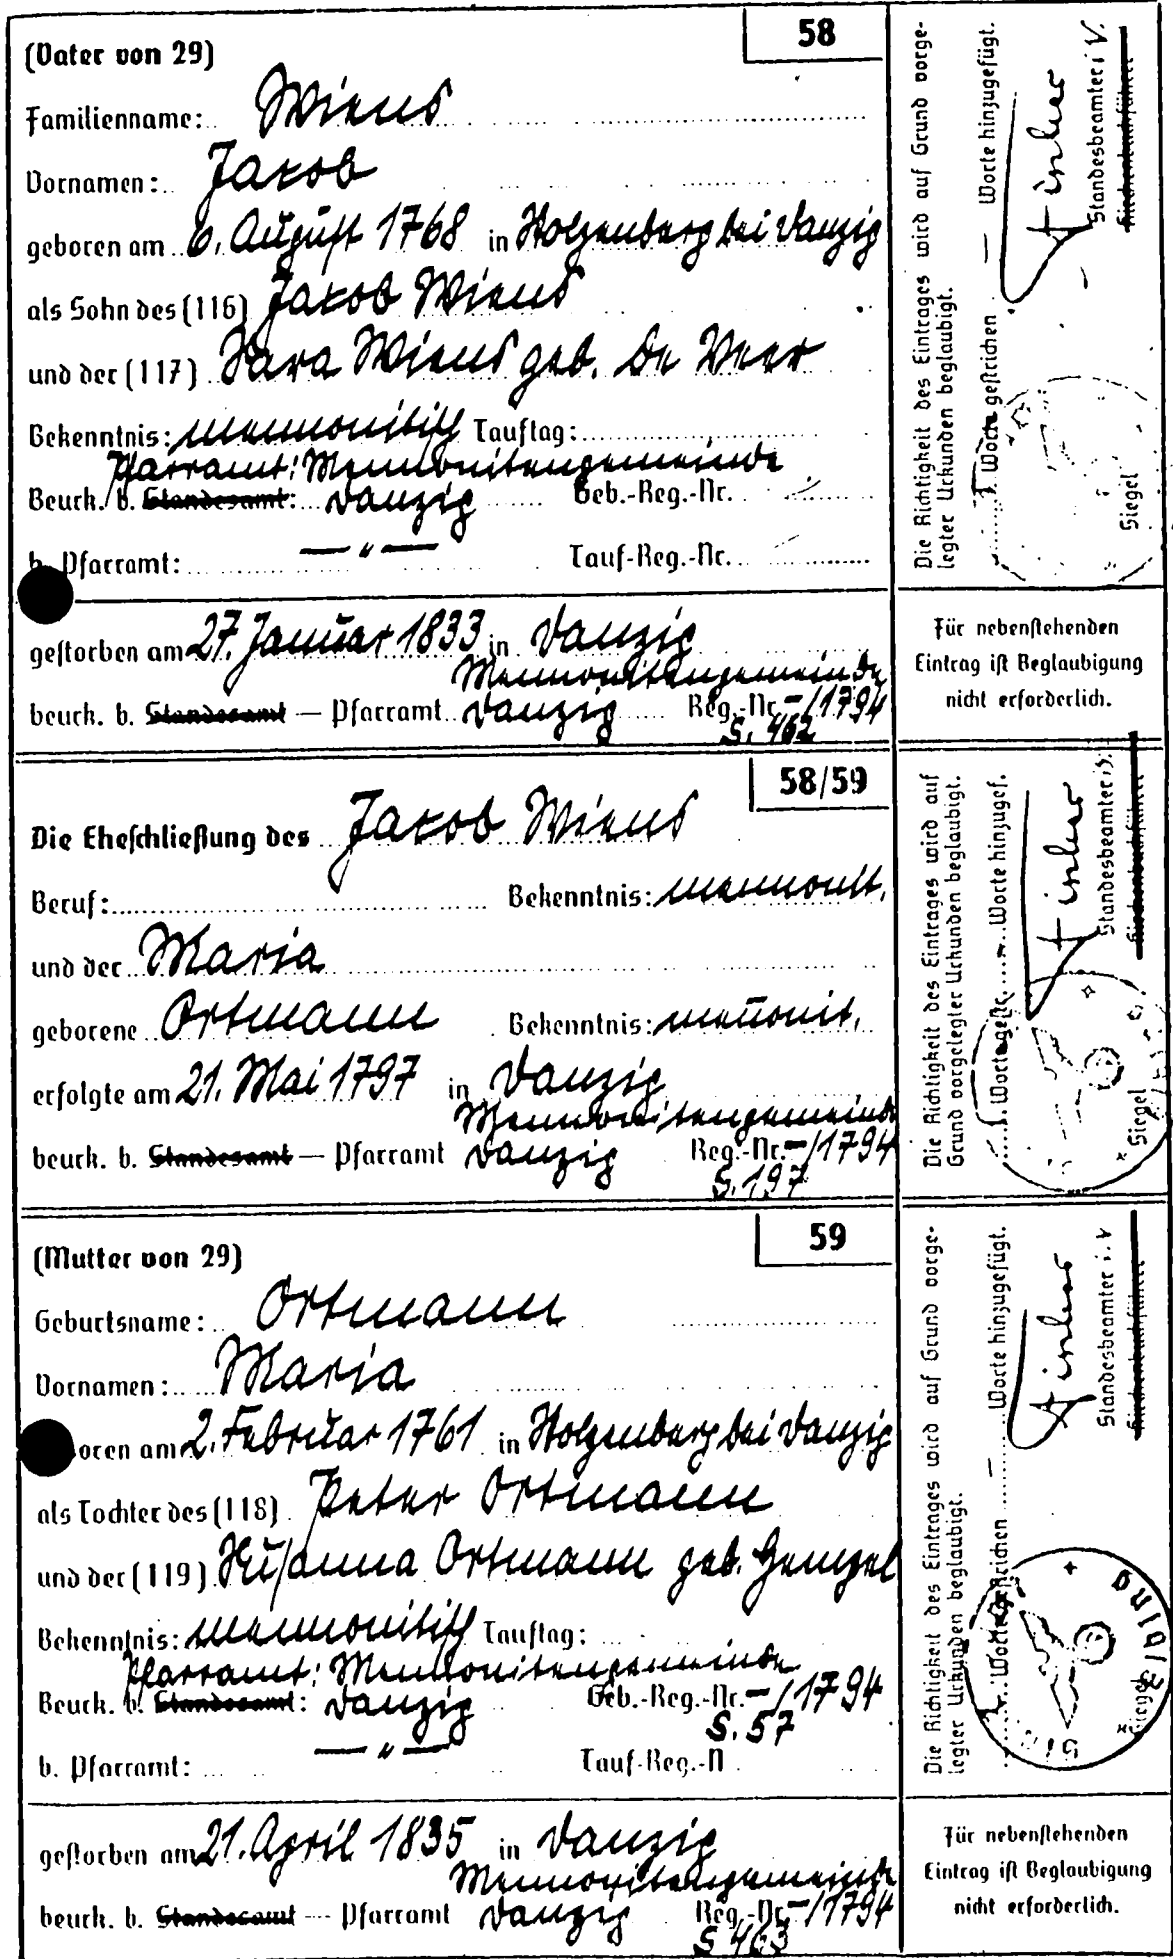 58
(Vater von 29)
Familienname: Wiens
Vornamen: Jakob
geboren am 6. August 1768 in Stolzenberg bei Danzig
als Sohn des (116) Jakob Wiens
und der (117) Sara Wiens geb. De Veer
Bekenntnis: mennonitisch Tauftag:
Pfarramt: Mennonitengemeinde
Beurk. b. Standesamt: Danzig Geb.-Reg.-Nr.
b. Pfarramt: — " — Tauf-Reg.-Nr.
gestorben am 27. Januar 1833 in Danzig
Mennonitengemeinde
beurk. b. Standesamt — Pfarramt Danzig Reg.-Nr. -/1794
S. 462
Die Richtigkeit des Eintrages wird auf Grund vorge-
legter Urkunden beglaubigt.
1 Worte gestrichen — Worte hinzugefügt.
Standesbeamter i. V.
Kirchenbuchführer
Siegel
Für nebenstehenden
Eintrag ist Beglaubigung
nicht erforderlich.
58/59
Die Eheschließung des Jakob Wiens
Beruf: Bekenntnis: mennonit.
und der Maria
geborene Ortmann Bekenntnis: mennonit.
erfolgte am 21. Mai 1797 in Danzig
Mennonitengemeinde
beurk. b. Standesamt — Pfarramt Danzig Reg.-Nr. -/1794
S. 197
Die Richtigkeit des Eintrages wird auf
Grund vorgelegter Urkunden beglaubigt.
1 Worte gestr. — Worte hinzugef.
Standesbeamter i. V.
Kirchenbuchführer
Siegel
59
(Mutter von 29)
Geburtsname: Ortmann
Vornamen: Maria
geboren am 2. Februar 1761 in Stolzenberg bei Danzig
als Tochter des (118) Peter Ortmann
und der (119) Susanna Ortmann geb.
Bekenntnis: mennonitisch Tauftag:
Pfarramt: Mennonitengemeinde
Beurk. b. Standesamt: Danzig Geb.-Reg.-Nr. -/1794
S. 57
b. Pfarramt: — " — Tauf-Reg.-N
gestorben am 21. April 1835 in Danzig
Mennonitengemeinde
beurk. b. Standesamt — Pfarramt Danzig Reg.-Nr. -/1794
S 463
Die Richtigkeit des Eintrages wird auf Grund vorge-
legter Urkunden beglaubigt.
1 Worte gestrichen — Worte hinzugefügt.
Standesbeamter i. V
Kirchenbuchführer
Siegel
Elbing
Für nebenstehenden
Eintrag ist Beglaubigung
nicht erforderlich.